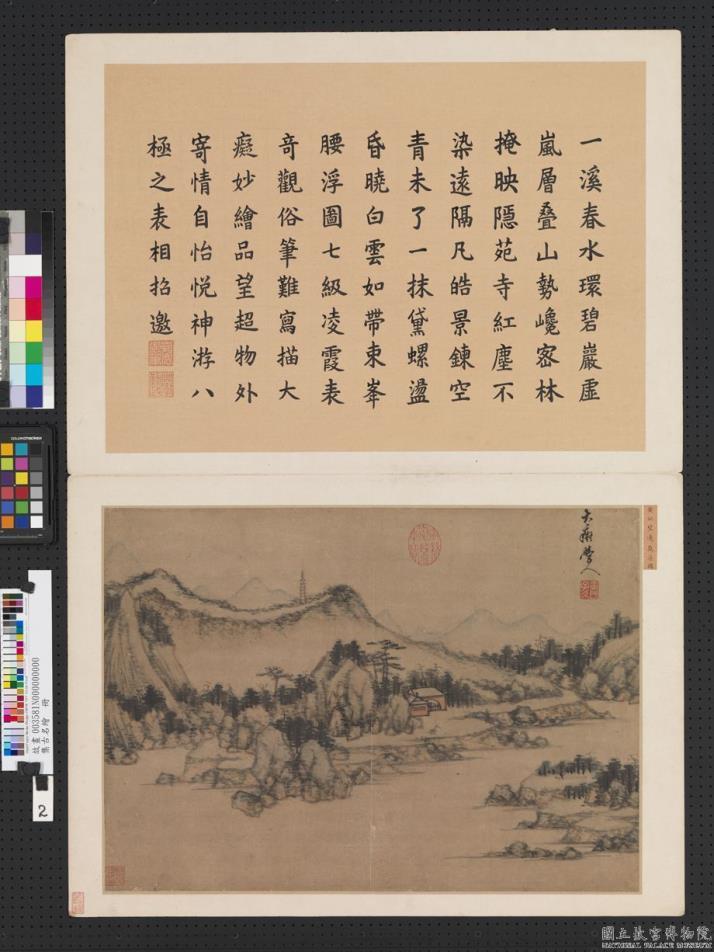 一溪春水環碧巖虛
嵐層叠山勢巉宻林
掩映隱苑寺紅塵不
染遠隔凡皓景鍊空
青未了一抹黛螺盪
昏曉白雲如帶束峯
腰浮圖七級凌霞表
竒觀俗筆難寫描大
癡妙繪品望超物外
寄情自怡悅神游八
極之表相招邀
大癡學人
故畫003581N000000000
集古名繪 冊
2
國立故宮博物院
NATIONAL PALACE MUSEUM